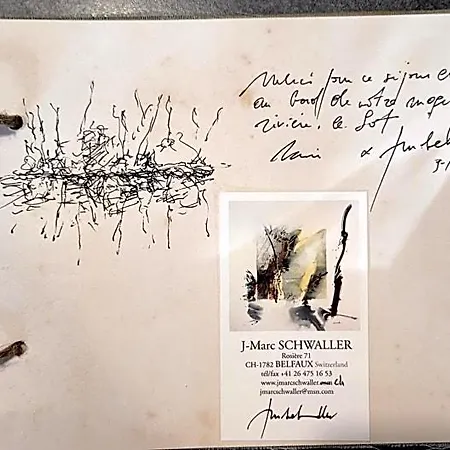 Merci pour ce séjour
au bord de votre
rivière, le Lot
&
J-Marc SCHWALLER
Rosière 71
CH-1782 BELFAUX Switzerland
tél/fax +41 26 475 16 53
www.jmarcschwaller.ch
jmarcschwaller@msn.com